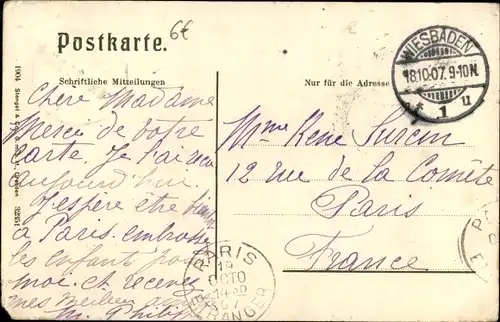 6f
Postkarte.
Schriftliche Mitteilungen
Nur für die Adresse
WIESBADEN
18.10.07. 9-10N.
1 u
1904 Stengel & Co
Chère Madame
Merci de votre
carte. Je l'ai reçu
aujourd'hui
J'espère être
à Paris. embrassez
les enfants pour
moi et recevez
mes meilleurs
M. Philipp
Mme René
12 rue de la Comète
Paris
France
PARIS
19
OCTO
07
ETRANGER